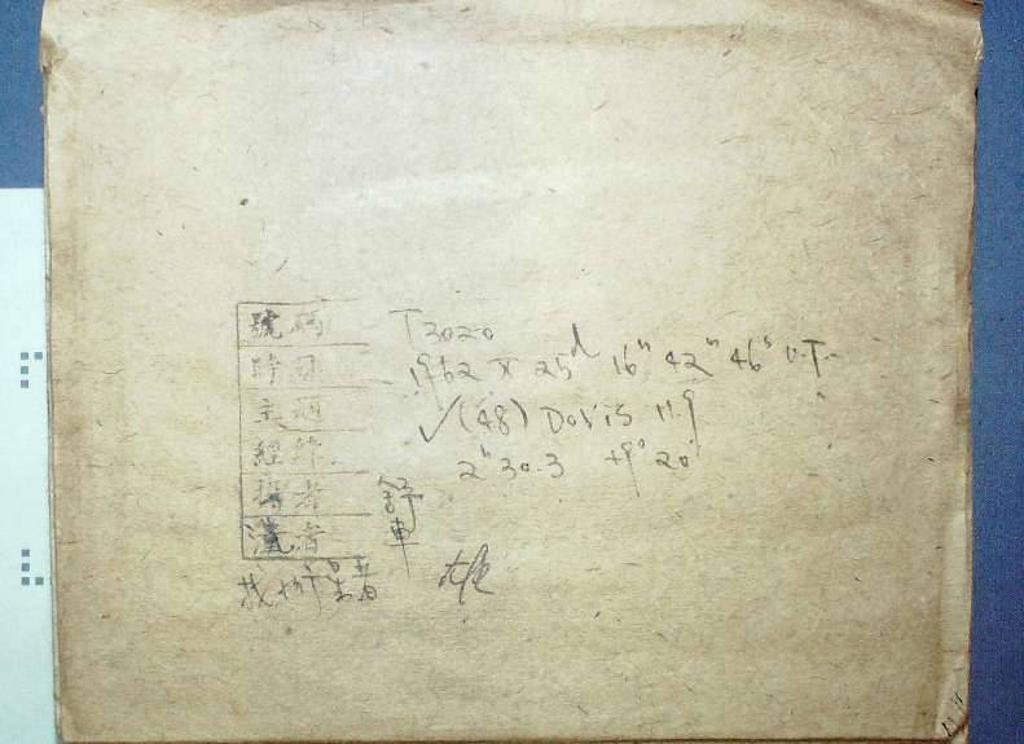 號碼 T3020
時刻 1962 X 25ᵈ 16ʰ 42ᵐ 46ˢ U.T.
主題 ✓(48) Doris 11.9
經緯 2ʰ30.3 +9°20'
攝者 舒
車